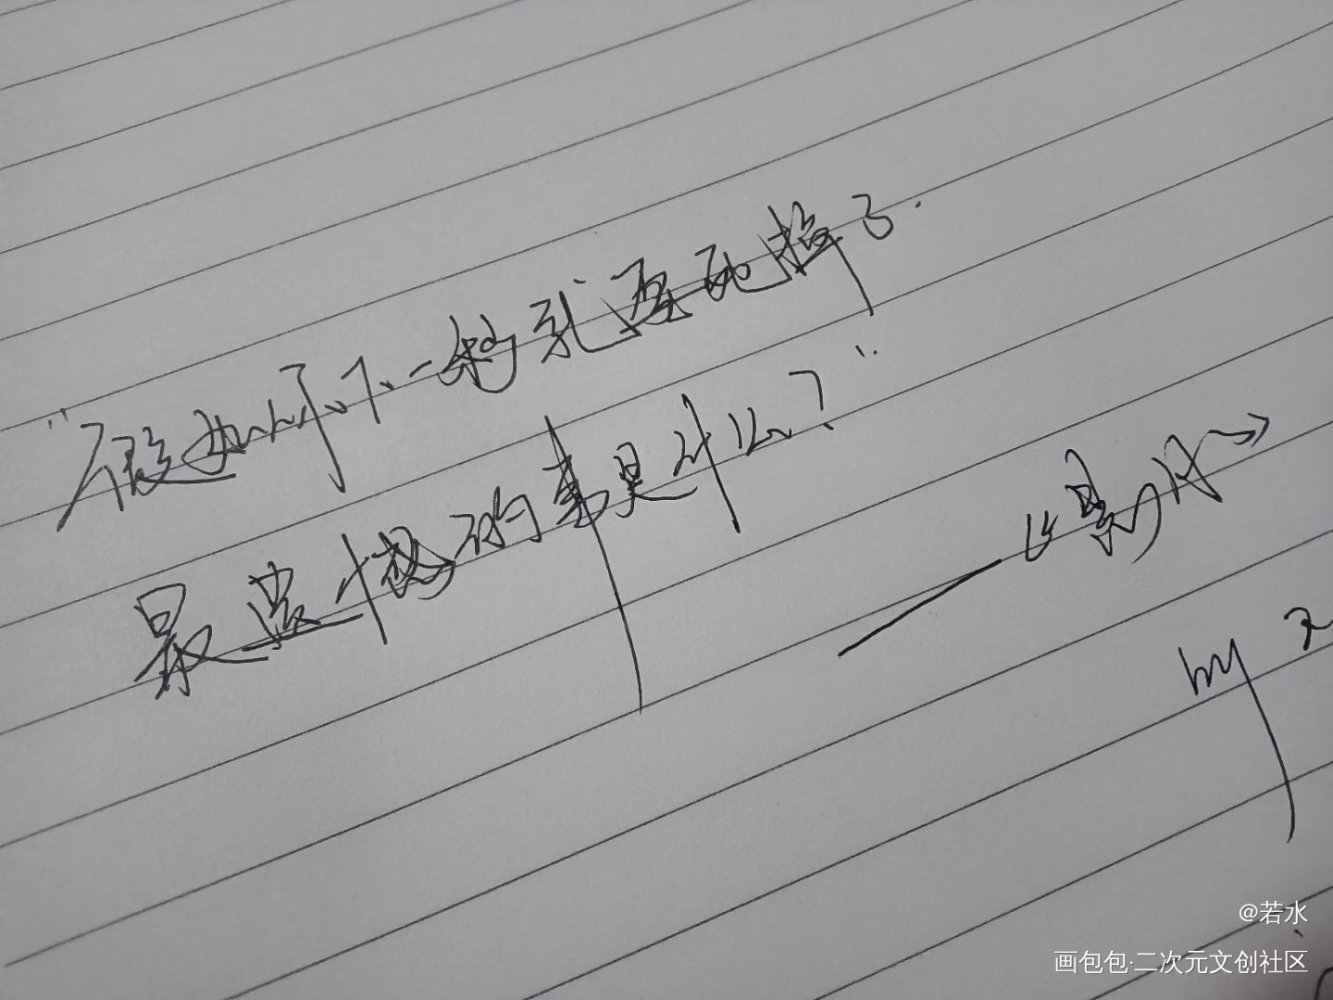 "假如你下一秒就要死掉了.
最遗憾的事是什么?"
——《影从》
by
@若水
画包包·二次元文创社区